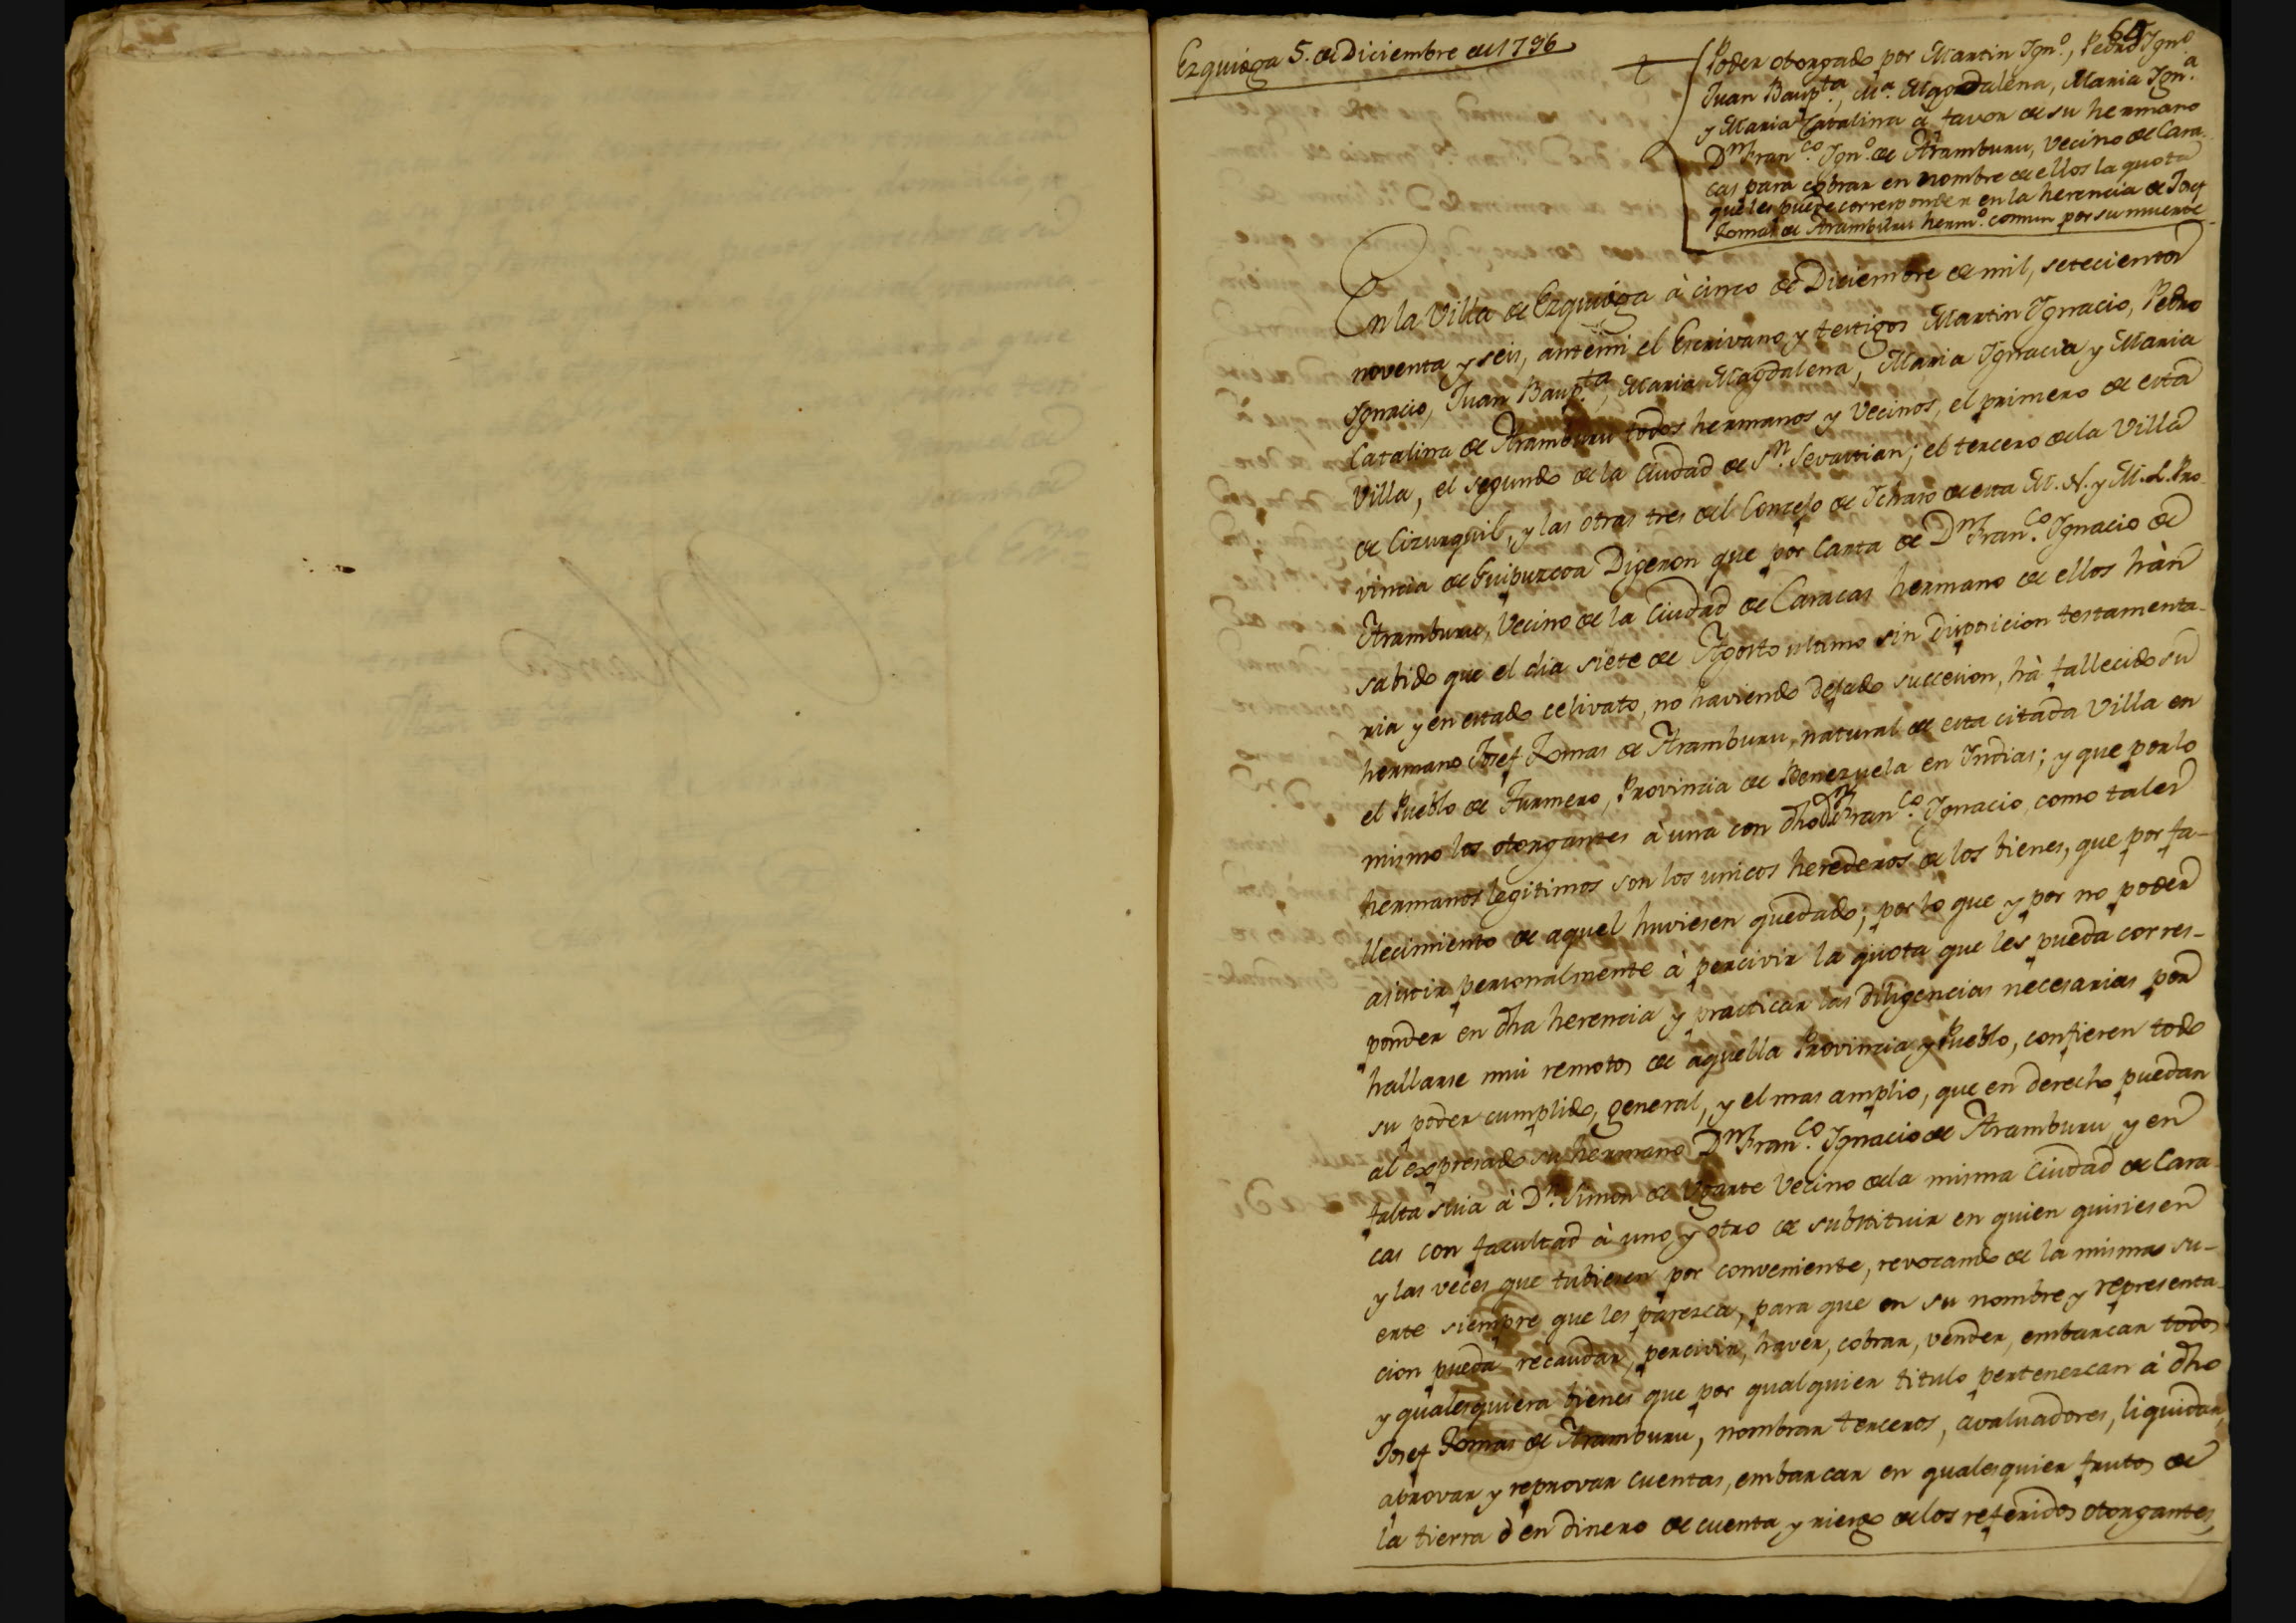 Ezquioga 5. de Diciembre de 1796
64
Poder otorgado por Martin Ign.º, Pedro Ign.º
Juan Baup.ta, M.a Magdalena, Maria Ign.a
y Maria Catalina à favor de su hermano
D.n Fran.co Ign.º de Aramburu, vecino de Cara-
cas para cobrar en nombre de ellos la quota
que les puede corresponder en la herencia de Josef
Tomas de Aramburu herm.º comun por su muerte
En la Villa de Ezquioga à cinco de Diciembre de mil, setecientos
noventa y seis, antemi el Escrivano y testigos Martin Ignacio, Pedro
Ignacio, Juan Baup.ta, Maria Magdalena, Maria Ignacia y Maria
Catalina de Aramburu todos hermanos y Vecinos, el primero de esta
Villa, el segundo de la Ciudad de S.n Sevastian; el tercero dela Villa
de Cizurquil, y las otras tres del Concejo de Ichaso de esta M. N. y M. L. Pro-
vincia de Guipuzcoa Digeron que por Carta de D.n Fran.co Ignacio de
Aramburu, Vecino de la Ciudad de Caracas hermano de ellos hàn
sabido que el dia siete de Agosto ultimo sin disposicion testamenta-
ria y en estado celivato, no haviendo dejado succesion, hà fallecido su
hermano Josef Tomas de Aramburu, natural de esta citada Villa en
el Pueblo de Turmero, Provincia de Benezuela en Indias; y que por lo
mismo los otorgantes à una con dho D.n Fran.co Ignacio, como tales
hermanos legitimos son los unicos herederos de los bienes, que por fa-
llecimiento de aquel huviesen quedado; por lo que y por no poder
asistir personalmente à percivir la quota que les pueda corres-
ponder en dha herencia y practicar las diligencias necesarias por
hallarse mui remotos de aquella Provincia y Pueblo, confieren todo
su poder cumplido, general, y el mas amplio, que en derecho puedan
al expresado su hermano D.n Fran.co Ignacio de Aramburu, y en
falta suia à D.n Simon de Ugarte Vecino dela misma Ciudad de Cara-
cas con facultad à uno y otro de substituir en quien quisiesen
y las veces que tubiesen por conveniente, revocando de la misma su-
erte siempre que les paresca, para que en su nombre y representa-
cion pueda recaudar, percivir, haver, cobrar, vender, embarcar todos
y qualesquiera bienes que por qualquier titulo pertenezcan à dho
Josef Tomas de Aramburu, nombrar terceros, avaluadores, liquidar,
aprovar y reprovar cuentas, embarcar en qualesquier frutos de
la tierra ò en dinero de cuenta y riesgo delos referidos otorgantes,